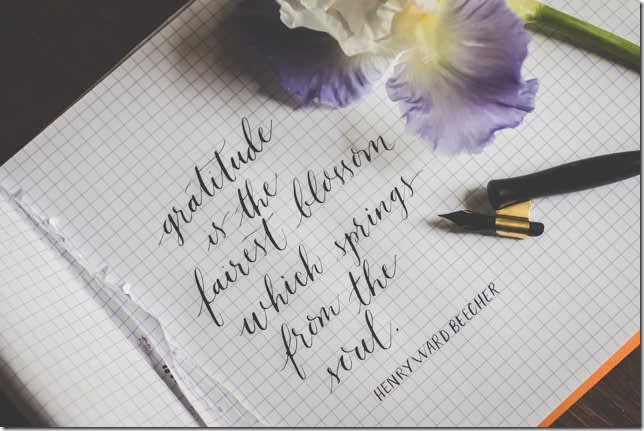 gratitude
is the
fairest blossom
which springs
from the
soul.
HENRY WARD BEECHER